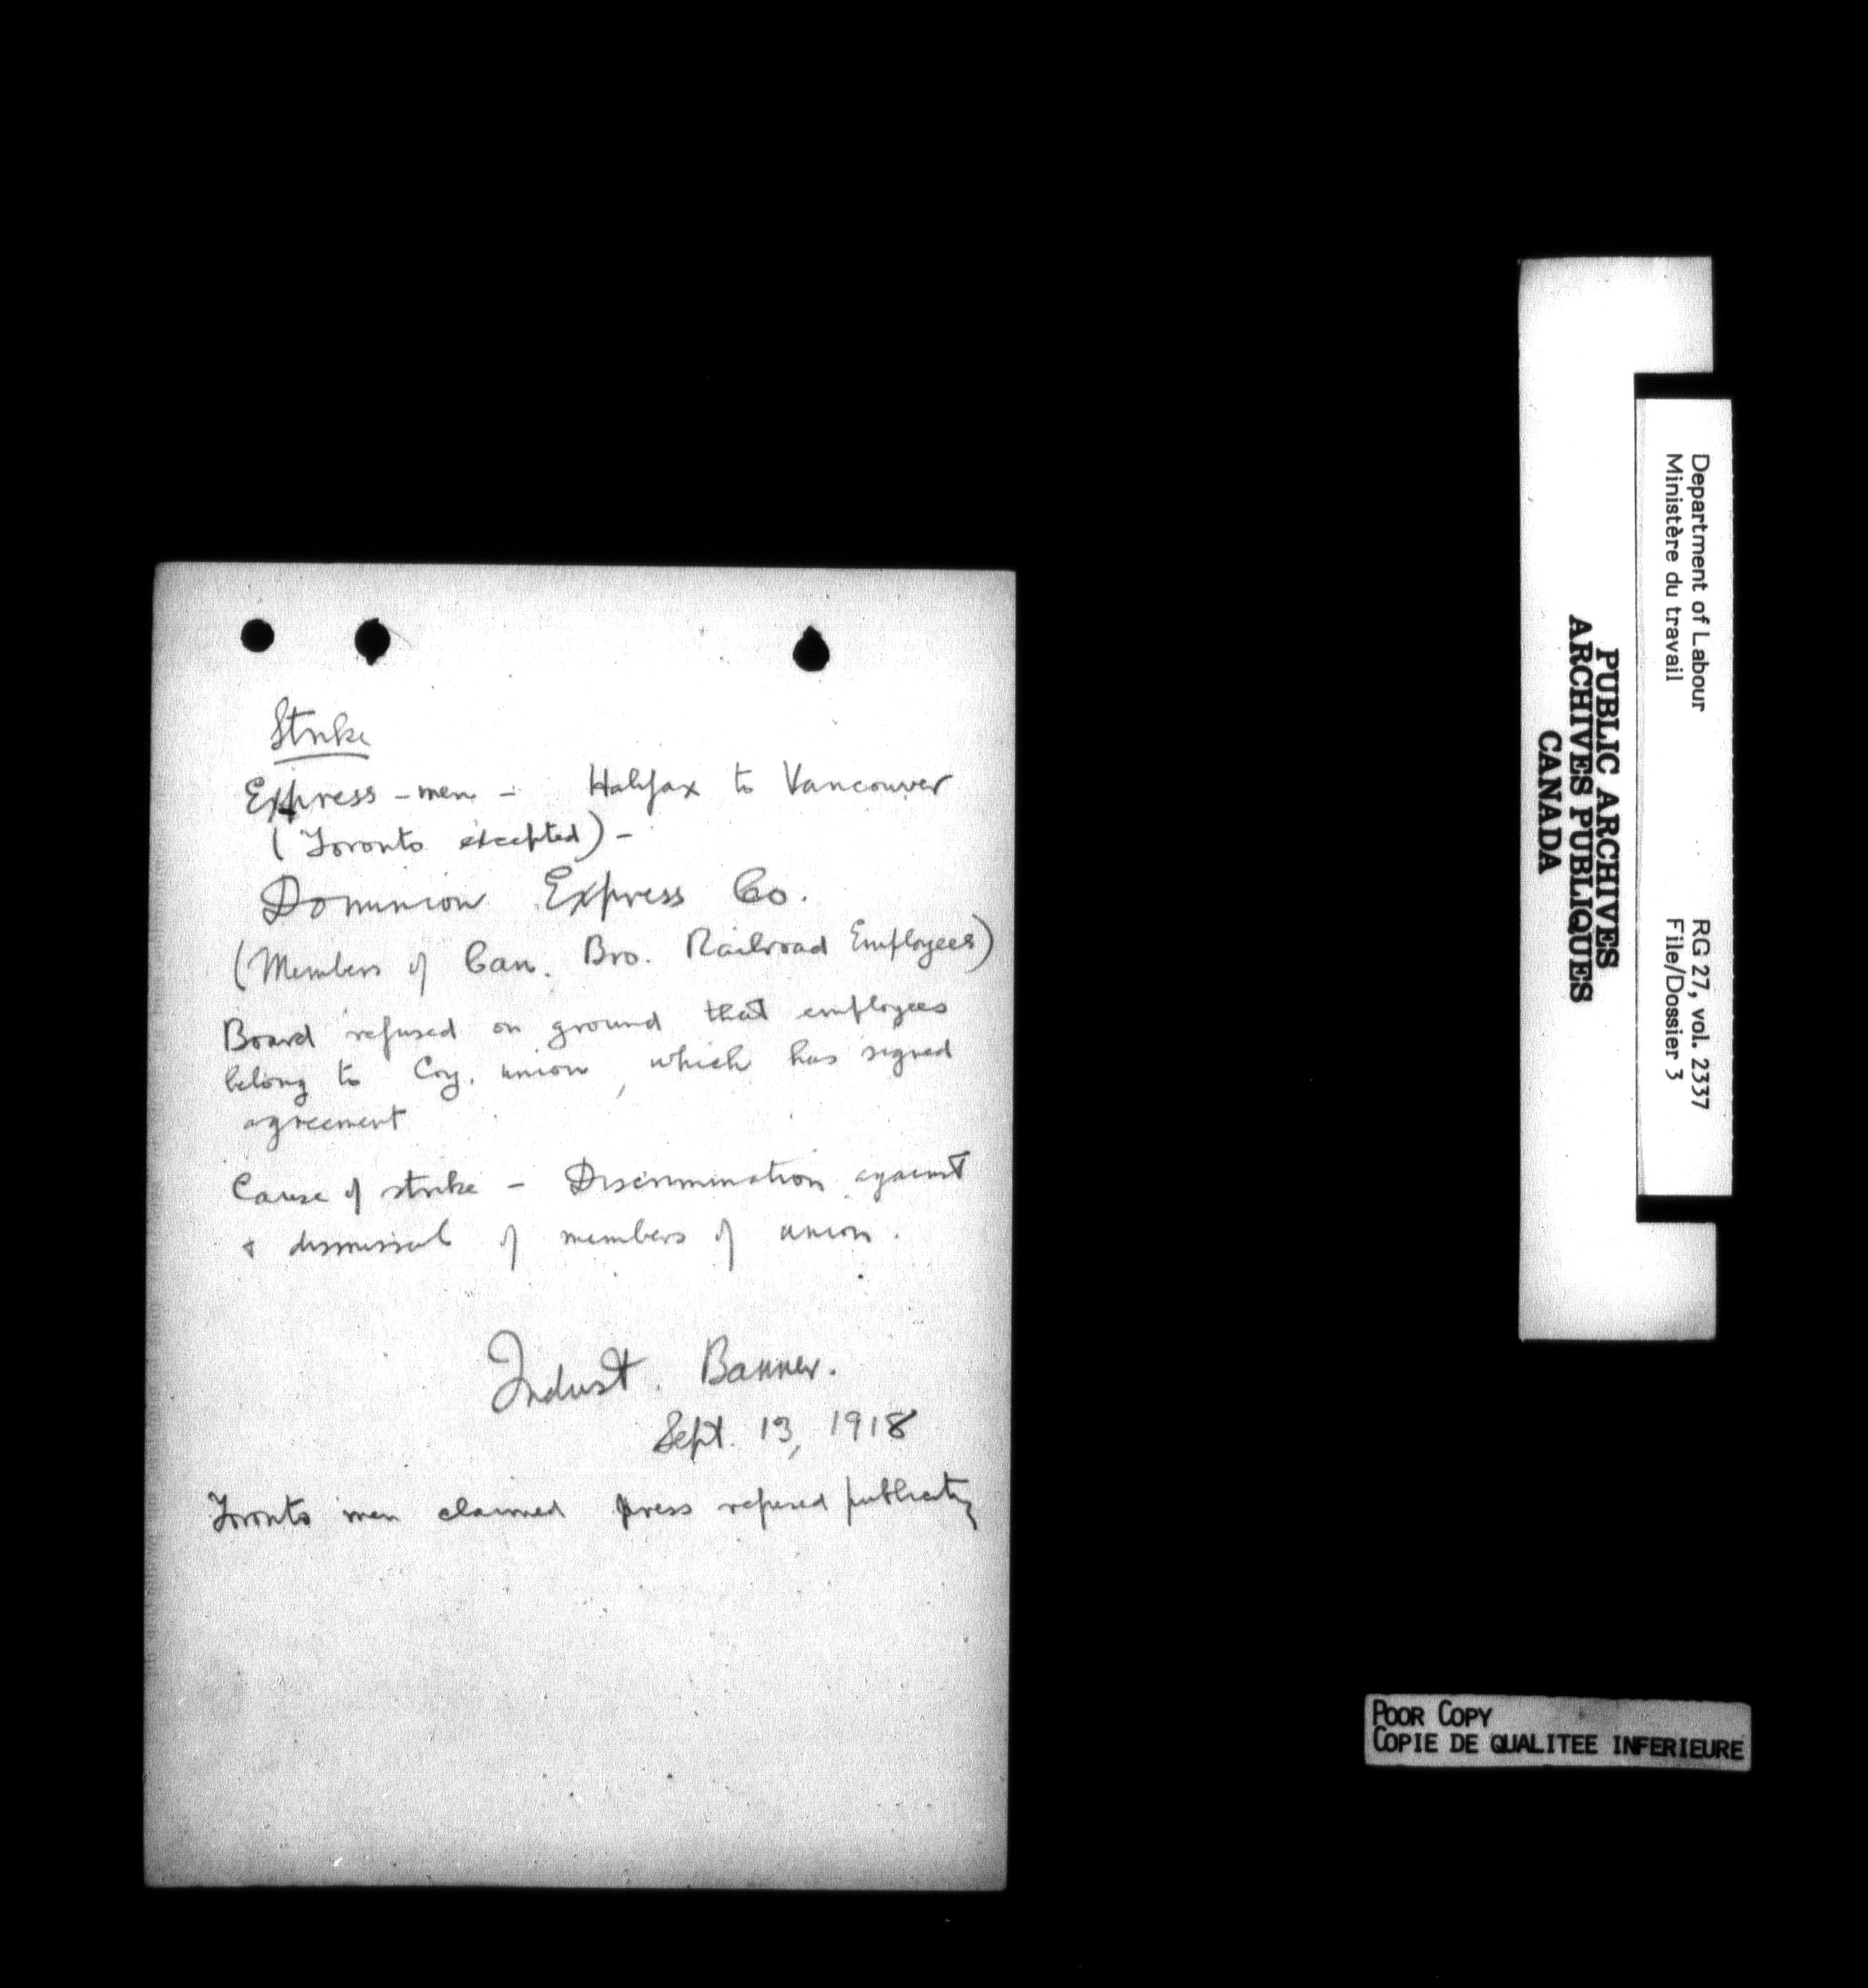 Strike
Express-men - Halifax to Vancouver
(Toronto excepted) -
Dominion Express Co.
(Members of Can. Bro. Railroad Employees)
Board refused on ground that employees
belong to Coy. union, which has signed
agreement
Cause of strike - Discrimination against
& dismissal of members of union.
Indust. Banner.
Sept. 13, 1918
Toronto men claimed press refused publicity
Department of Labour
Ministère du travail
RG 27, vol. 2337
File/Dossier 3
PUBLIC ARCHIVES
ARCHIVES PUBLIQUES
CANADA
POOR COPY
COPIE DE QUALITEE INFERIEURE